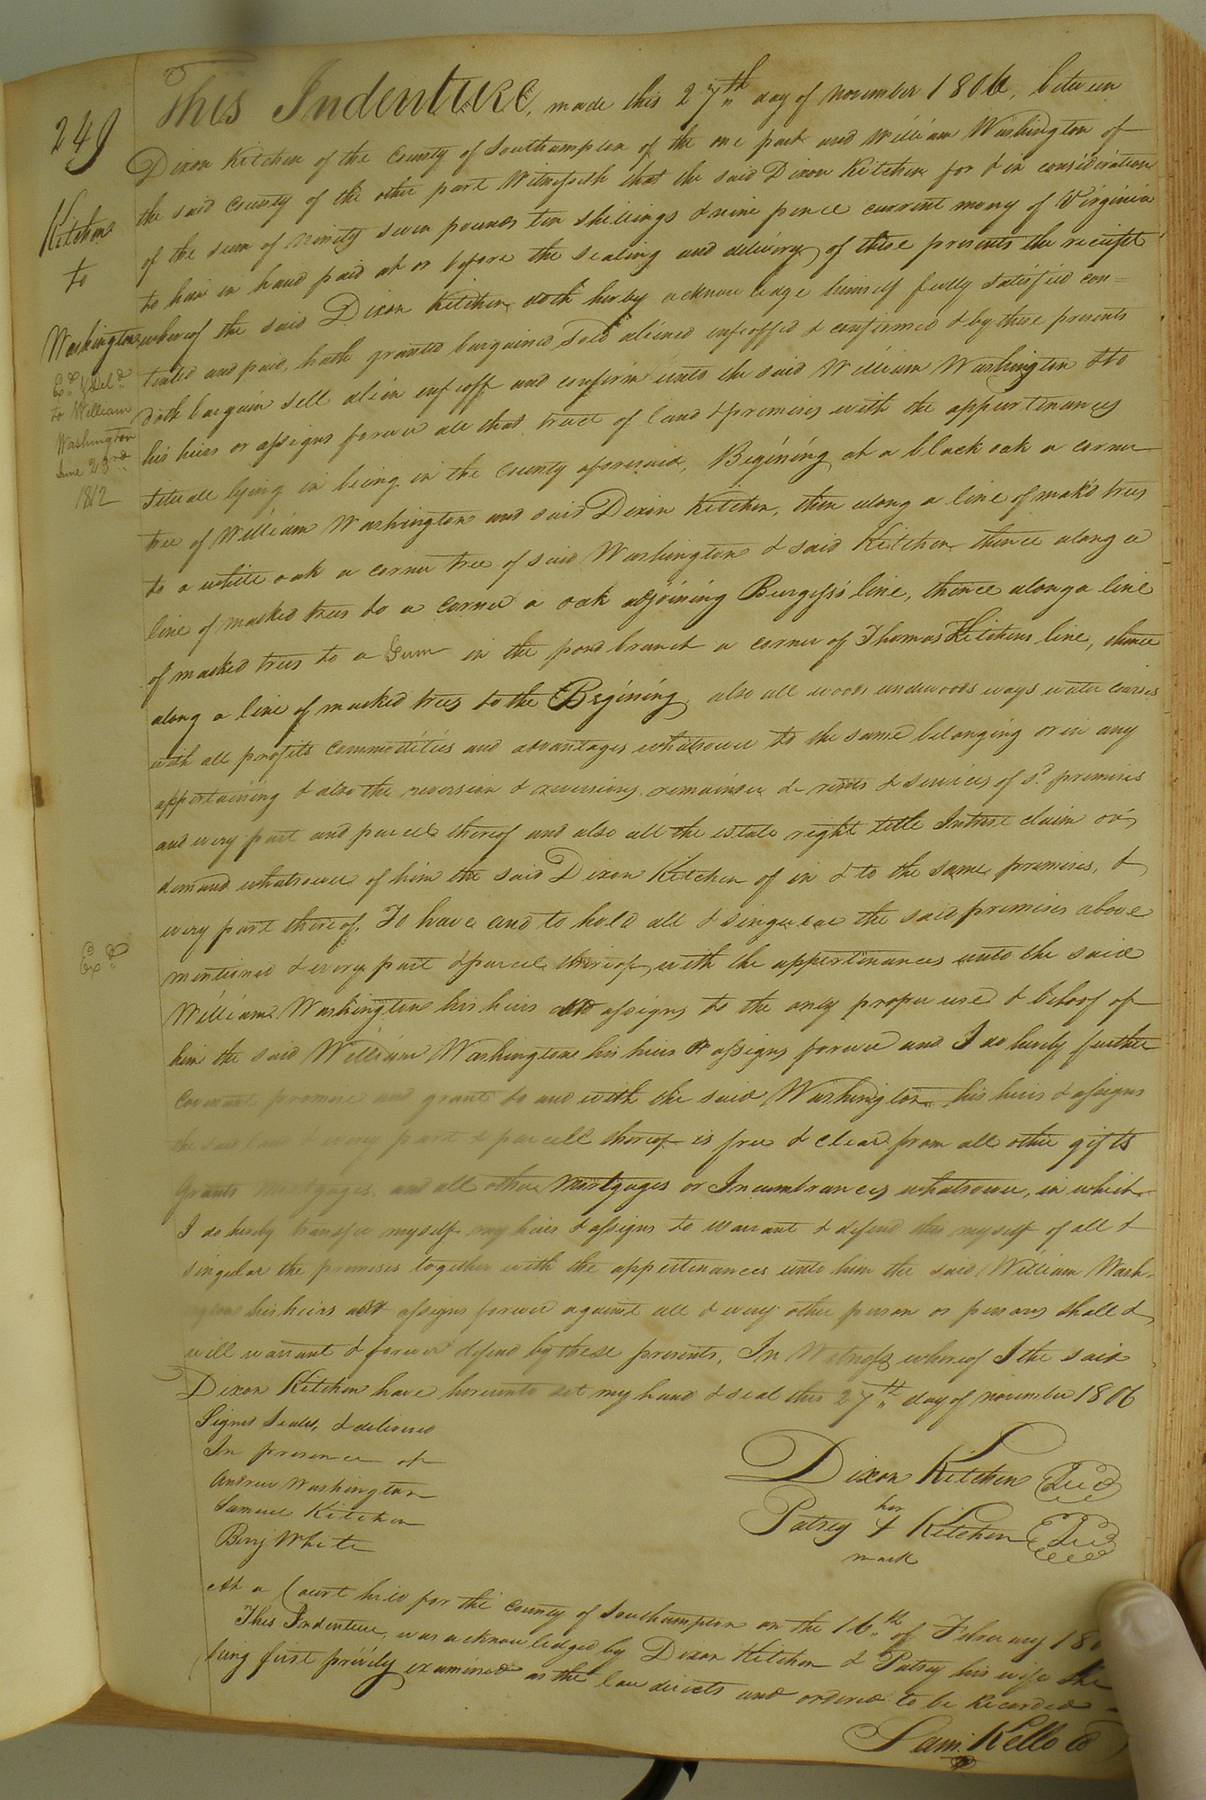 249
Kitchen
to
Washington
Ex.d & Del.d
to William
Washington
June 23rd
1812
Ex.d
This Indenture, made this 27th day of november 1806, between
Dixon Kitchen of the County of Southampton of the one part and William Washington of
the said County of the other part Witnesseth that the said Dixon Kitchen for & in consideration
of the sum of ninety seven pounds ten shillings & nine pence current mony of Virginia
to him in hand paid at or before the sealing and delivery of these presents the receipt
whereof the said Dixon Kitchen doth herby acknowledge himself fully satisfied con=
tented and paid, hath granted bargained Sold aliened infeoffed & confirmed & by these presents
doth bargain sell alien infeoff and confirm unto the said William Washington & to
his heirs or assigns forever all that tract of land & premises with the appurtinances
Situate lying in being in the County aforesaid, Begining at a black oak a corner
tree of William Washington and said Dixon Kitchen, then along a line of mak'd trees
to a white oak a corner tree of said Washington & said Kitchen thence along a
line of marked trees to a corner a oak adjoining Burgess's line, thence along a line
of marked trees to a Gum in the pond branch a corner of Thomas Kitchens line, thence
along a line of marked trees to the Begining also all woods underwoods ways water courses
with all profits commodities and advantages whatsoever to the same belonging or in any
appertaining & also the reversion & reversions remainder & rents & services of sd. premises
and every part and parcel thereof and also all the estate right title Intrest claim or
demand whatsoever of him the said Dixon Kitchen of in & to the same premises, &
every part thereof, To have and to hold all & singular the said premises above
mentioned & every part & parcel thereof with the appertinances unto the said
William Washington his heirs and assigns to the only proper use & behoof of
him the said William Washington his heirs or assigns forever and I do hereby further
Covenant promise and grant to and with the said Washington his heirs & assigns
the said land & every part & parcell thereof is free & clear from all other gifts
Grants mortgages and all other Mortgages or Incumbrances whatsoever, in which
I do hereby transfer myself my heirs & assigns to warrant & defend this myself of all &
singular the premises together with the appertinances unto him the said William Wash-
ington his heirs and assigns forever against all & every other person or persons shall &
will warrant & forever defend by these presents, In Witness whereof I the said
Dixon Kitchen have hereunto set my hand & seal this 27th day of november 1806
Signed Sealed, & delivered
In presence of
Andrew Washington
Samuel Kitchen
Benj White
Dixon Kitchen
her
Patsey + Kitchen
mark
At a Court held for the County of Southampton on the 16.th of February 180
This Indenture was acknowledged by Dixon Kitchen & Patsey his wife She
being first privily examined as the law directs and ordered to be Recorded
Sam: Kello